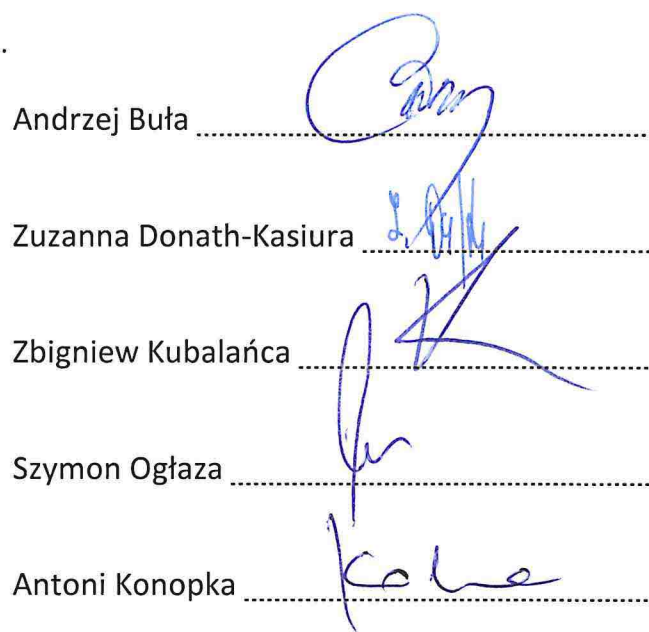 .
Andrzej Buła
Zuzanna Donath-Kasiura
Zbigniew Kubalańca
Szymon Ogłaza
Antoni Konopka